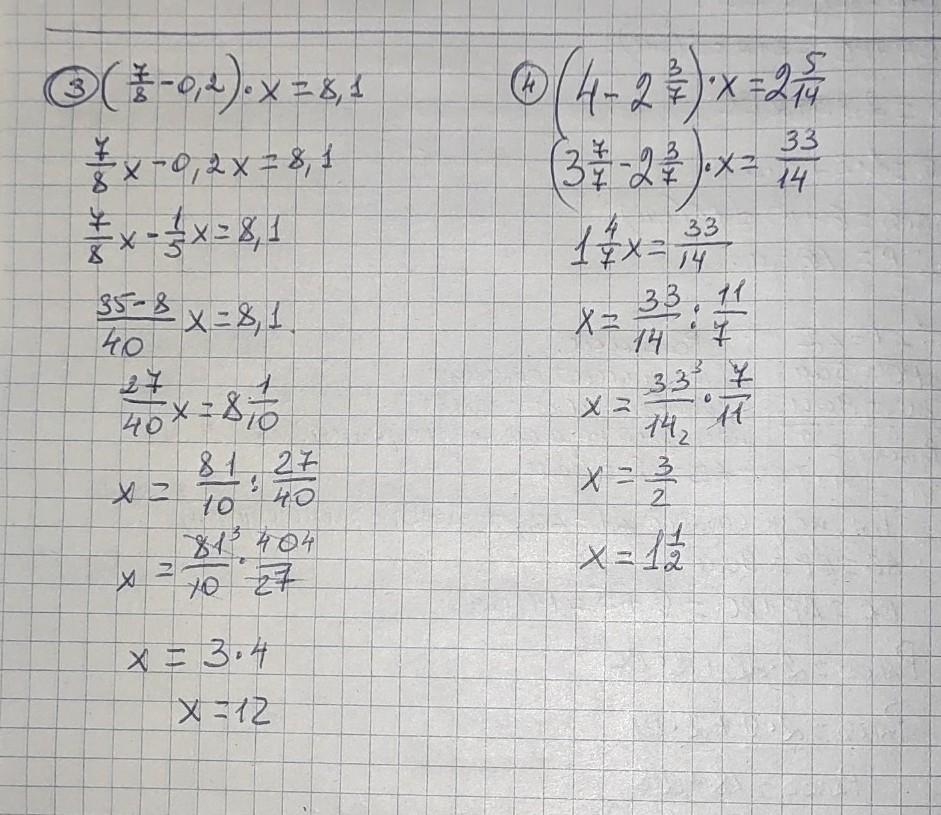 ③ (7/8 - 0,2) · x = 8,1
7/8 x - 0,2x = 8,1
7/8 x - 1/5 x = 8,1
35-8/40 x = 8,1
27/40 x = 8 1/10
x = 81/10 : 27/40
x = 81³/10 · 40⁴/27
x = 3·4
x = 12
④ (4 - 2 3/7) · x = 2 5/14
(3 7/7 - 2 3/7) · x = 33/14
1 4/7 x = 33/14
x = 33/14 : 11/7
x = 33³/14₂ · 7/11
x = 3/2
x = 1 1/2